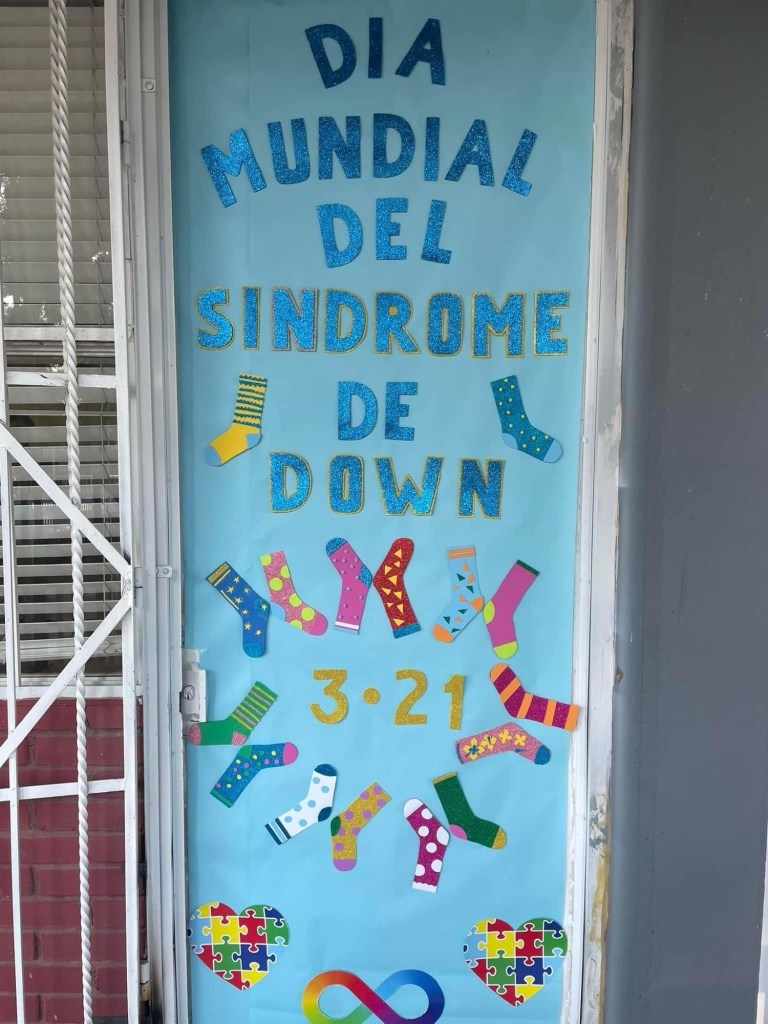 DIA
MUNDIAL
DEL
SINDROME
DE
DOWN
3•21